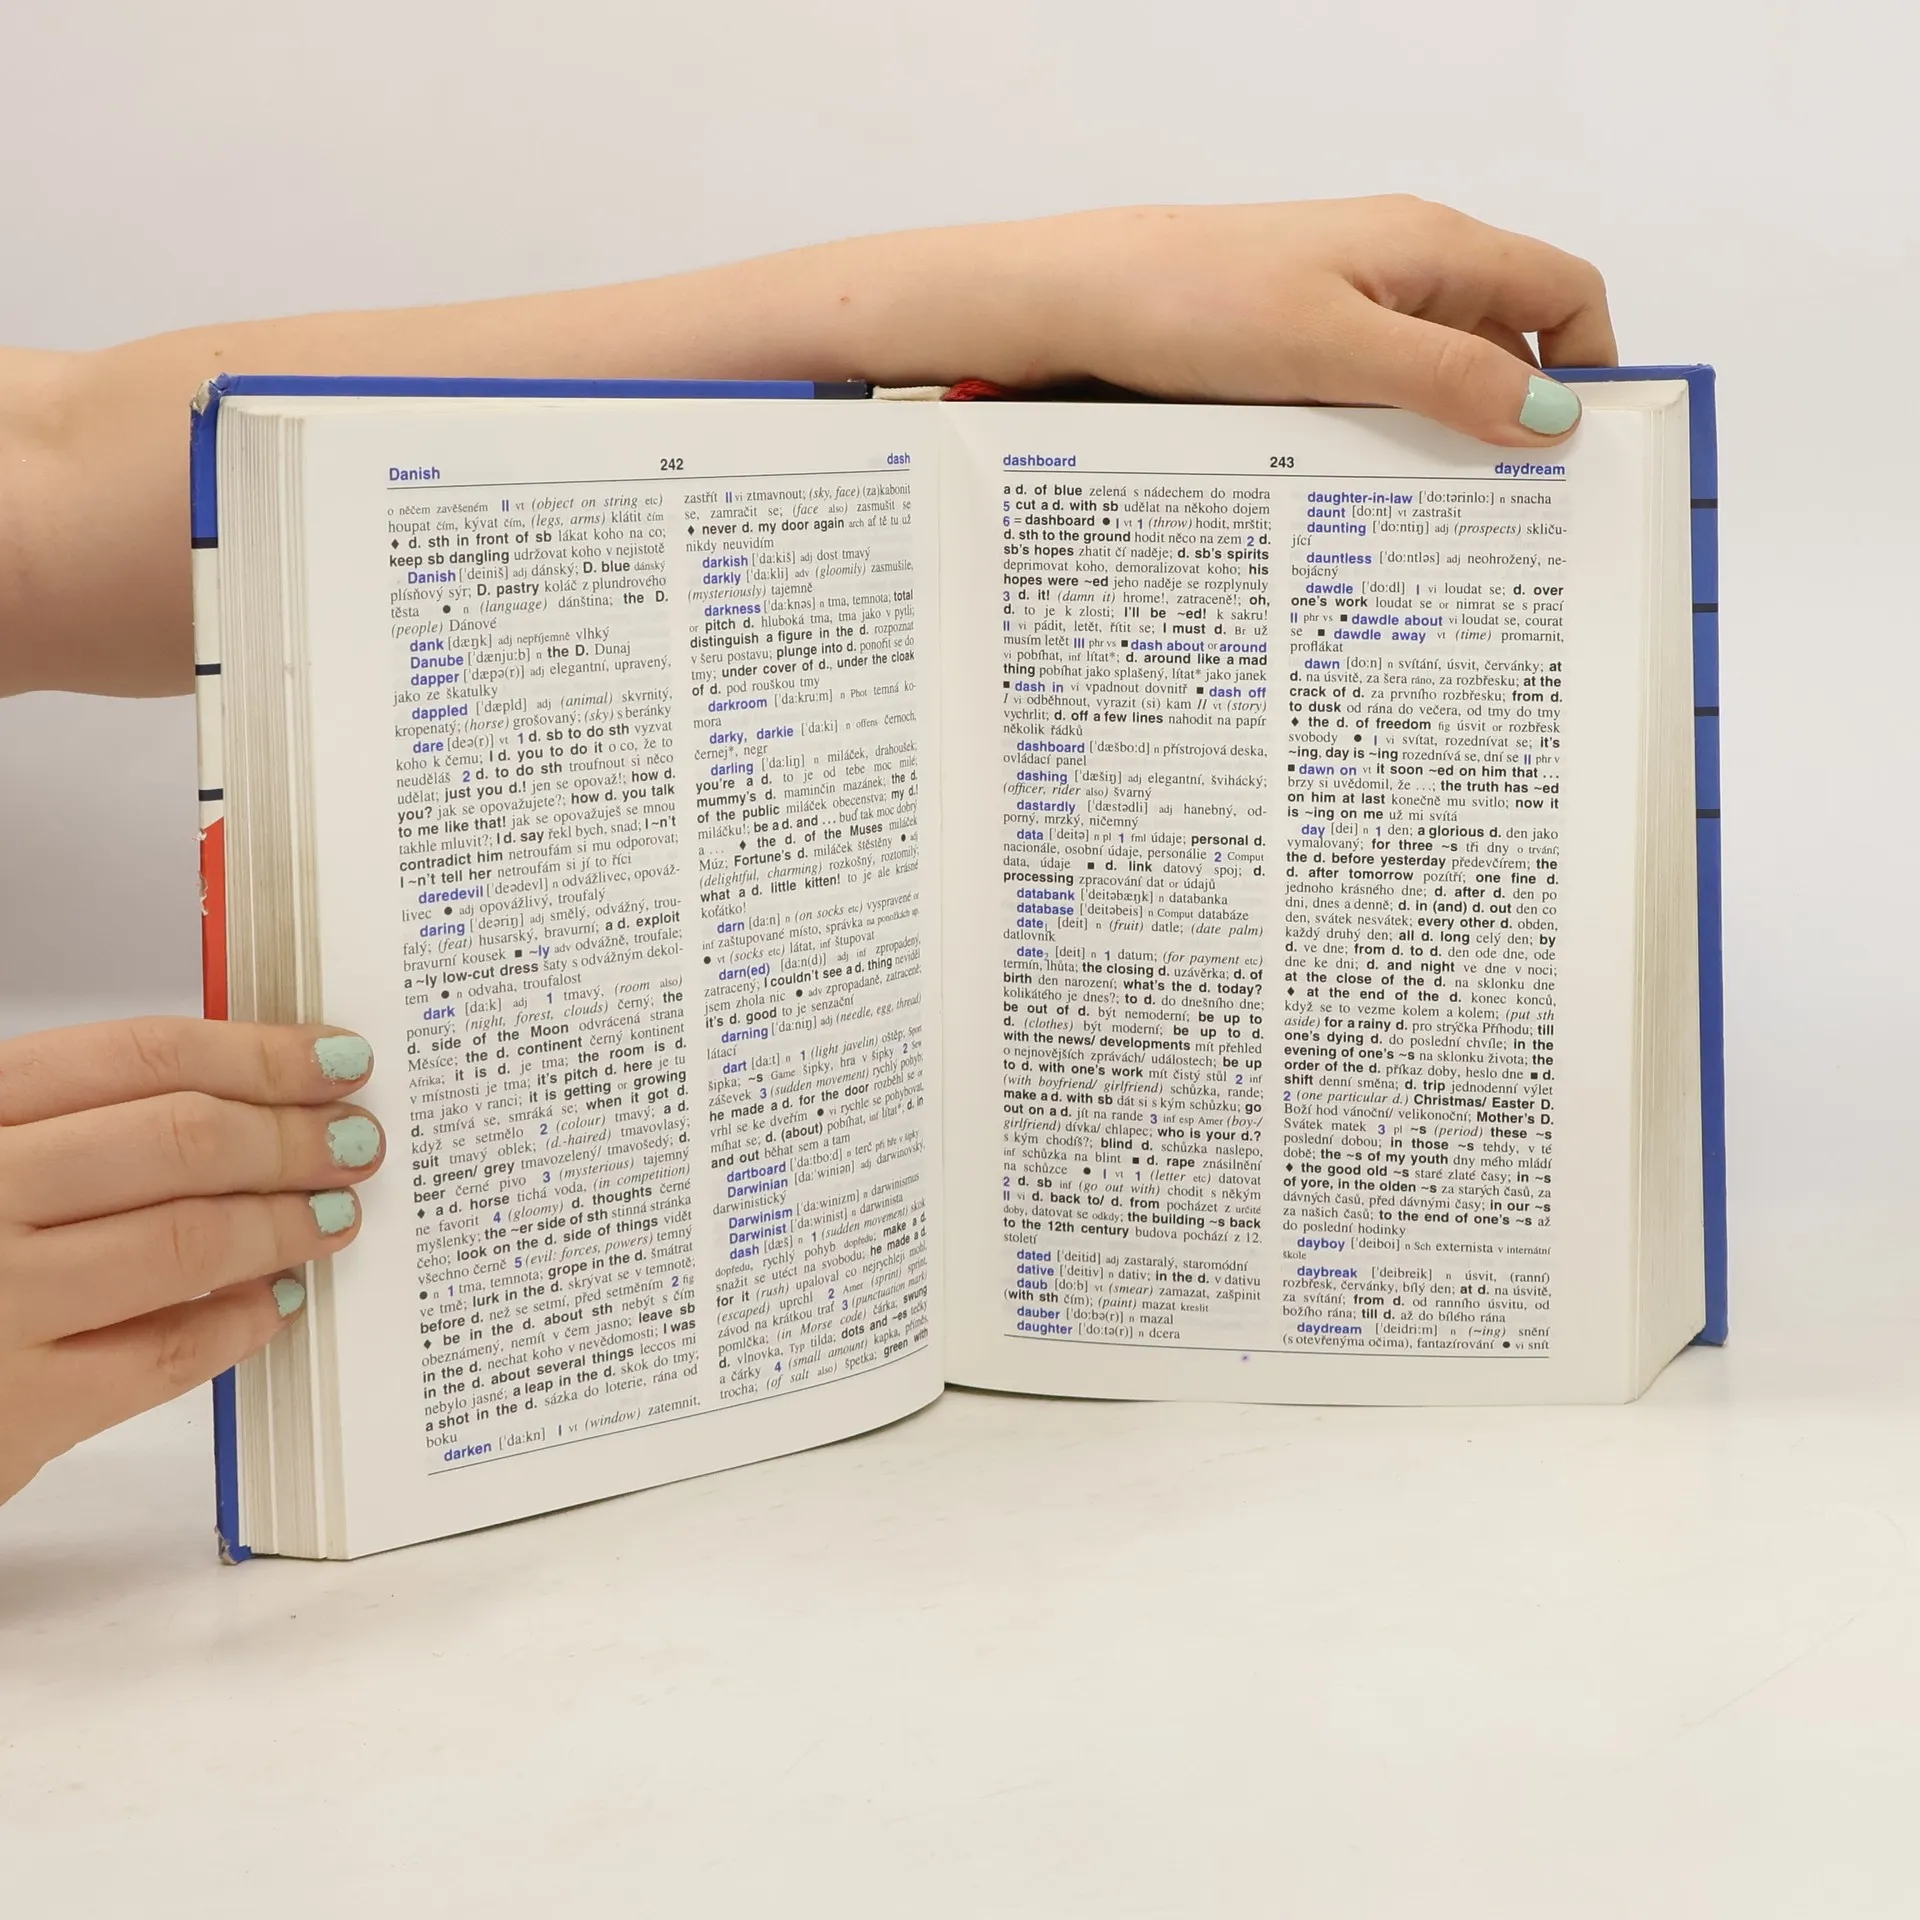 Danish
242
dash
o něčem zavěšeném II vt (object on string etc)
houpat čím, kývat čím, (legs, arms) klátit čím
♦ d. sth in front of sb lákat koho na co;
keep sb dangling udržovat koho v nejistotě
Danish ['deiniš] adj dánský; D. blue dánský
plísňový sýr; D. pastry koláč z plundrového
těsta ● n (language) dánština; the D.
(people) Dánové
dank [dæŋk] adj nepříjemně vlhký
Danube ['dænju:b] n the D. Dunaj
dapper ['dæpə(r)] adj elegantní, upravený,
jako ze škatulky
dappled ['dæpld] adj (animal) skvrnitý,
kropenatý; (horse) grošovaný; (sky) s beránky
dare [deə(r)] vt 1 d. sb to do sth vyzvat
koho k čemu; I d. you to do it o co, že to
neuděláš 2 d. to do sth troufnout si něco
udělat; just you d.! jen se opovaž!; how d.
you? jak se opovažujete?; how d. you talk
to me like that! jak se opovažuješ se mnou
takhle mluvit?; I d. say řekl bych, snad; I ~n't
contradict him netroufám si mu odporovat;
I ~n't tell her netroufám si jí to říci
daredevil ['deədevl] n odvážlivec, opováž-
livec ● adj opovážlivý, troufalý
daring ['deəriŋ] adj smělý, odvážný, trou-
falý; (feat) husarský, bravurní; a d. exploit
bravurní kousek ■ ~ly adv odvážně, troufale;
a ~ly low-cut dress šaty s odvážným dekol-
tem ● n odvaha, troufalost
dark [da:k] adj 1 tmavý, (room also)
ponurý; (night, forest, clouds) černý; the
d. side of the Moon odvrácená strana
Měsíce; the d. continent černý kontinent
Afrika; it is d. je tma; the room is d.
v místnosti je tma; it's pitch d. here je tu
tma jako v ranci; it is getting or growing
d. stmívá se, smráká se; when it got d.
když se setmělo 2 (colour) tmavý; a d.
suit tmavý oblek; (d.-haired) tmavovlasý;
d. green/ grey tmavozelený/ tmavošedý; d.
beer černé pivo 3 (mysterious) tajemný
♦ a d. horse tichá voda, (in competition)
ne favorit 4 (gloomy) d. thoughts černé
myšlenky; the ~er side of sth stinná stránka
čeho; look on the d. side of things vidět
všechno černě 5 (evil: forces, powers) temný
● n 1 tma, temnota; grope in the d. šmátrat
ve tmě; lurk in the d. skrývat se v temnotě;
before d. než se setmí, před setměním 2 fig
♦ be in the d. about sth nebýt s čím
obeznámený, nemít v čem jasno; leave sb
in the d. nechat koho v nevědomosti; I was
in the d. about several things leccos mi
nebylo jasné; a leap in the d. skok do tmy;
a shot in the d. sázka do loterie, rána od
boku
darken ['da:kn] I vt (window) zatemnit,
zastřít II vi ztmavnout; (sky, face) (za)kabonit
se, zamračit se; (face also) zasmušit se
♦ never d. my door again arch ať tě tu už
nikdy neuvidím
darkish ['da:kiš] adj dost tmavý
darkly ['da:kli] adv (gloomily) zasmušile,
(mysteriously) tajemně
darkness ['da:knəs] n tma, temnota; total
or pitch d. hluboká tma, tma jako v pytli;
distinguish a figure in the d. rozpoznat
v šeru postavu; plunge into d. ponořit se do
tmy; under cover of d., under the cloak
of d. pod rouškou tmy
darkroom ['da:kru:m] n Phot temná ko-
mora
darky, darkie ['da:ki] n offens černoch,
černej*, negr
darling ['da:liŋ] n miláček, drahoušek;
you're a d. to je od tebe moc milé;
mummy's d. maminčin mazánek; the d.
of the public miláček obecenstva; my d.!
miláčku!; be a d. and ... buď tak moc dobrý
a ... ♦ the d. of the Muses miláček
Múz; Fortune's d. miláček štěstěny ● adj
(delightful, charming) rozkošný, roztomilý;
what a d. little kitten! to je ale krásné
koťátko!
darn [da:n] n (on socks etc) vyspravené or
inf zaštupované místo, správka na ponožkách ap.
● vt (socks etc) látat, inf štupovat
darn(ed) [da:n(d)] adj inf zpropadený,
zatracený; I couldn't see a d. thing neviděl
jsem zhola nic ● adv zpropadaně, zatraceně;
it's d. good to je senzační
darning ['da:niŋ] adj (needle, egg, thread)
látací
dart [da:t] n 1 (light javelin) oštěp; Sport
šipka; ~s Game šipky, hra v šipky 2 Sew
záševek 3 (sudden movement) rychlý pohyb;
he made a d. for the door rozběhl se or
vrhl se ke dveřím ● vi rychle se pohybovat,
míhat se; d. (about) pobíhat, inf lítat*; d. in
and out běhat sem a tam
dartboard ['da:tbo:d] n terč při hře v šipky
Darwinian [da:'winiən] adj darwinovský,
darwinistický
Darwinism ['da:winizm] n darwinismus
Darwinist ['da:winist] n darwinista
dash [dæš] n 1 (sudden movement) skok
dopředu, rychlý pohyb dopředu; make a d.
snažit se utéct na svobodu; he made a d.
for it (rush) upaloval co nejrychleji mohl,
(escaped) uprchl 2 Amer (sprint) sprint,
závod na krátkou trať 3 (punctuation mark)
pomlčka; (in Morse code) čárka; swung
d. vlnovka, Typ tilda; dots and ~es tečky
a čárky 4 (small amount) kapka, příměs,
trocha; (of salt also) špetka; green with
dashboard
243
daydream
a d. of blue zelená s nádechem do modra
5 cut a d. with sb udělat na někoho dojem
6 = dashboard ● I vt 1 (throw) hodit, mrštit;
d. sth to the ground hodit něco na zem 2 d.
sb's hopes zhatit čí naděje; d. sb's spirits
deprimovat koho, demoralizovat koho; his
hopes were ~ed jeho naděje se rozplynuly
3 d. it! (damn it) hrome!, zatraceně!; oh,
d. to je k zlosti; I'll be ~ed! k sakru!
II vi pádit, letět, řítit se; I must d. Br už
musím letět III phr vs ■ dash about or around
vi pobíhat, inf lítat*; d. around like a mad
thing pobíhat jako splašený, lítat* jako janek
■ dash in vi vpadnout dovnitř ■ dash off
I vi odběhnout, vyrazit (si) kam II vt (story)
vychrlit; d. off a few lines nahodit na papír
několik řádků
dashboard ['dæšbo:d] n přístrojová deska,
ovládací panel
dashing ['dæšiŋ] adj elegantní, švihácký;
(officer, rider also) švarný
dastardly ['dæstədli] adj hanebný, od-
porný, mrzký, ničemný
data ['deitə] n pl 1 fml údaje; personal d.
nacionále, osobní údaje, personálie 2 Comput
data, údaje ■ d. link datový spoj; d.
processing zpracování dat or údajů
databank ['deitəbæŋk] n databanka
database ['deitəbeis] n Comput databáze
date₁ [deit] n (fruit) datle; (date palm)
datlovník
date₂ [deit] n 1 datum; (for payment etc)
termín, lhůta; the closing d. uzávěrka; d. of
birth den narození; what's the d. today?
kolikátého je dnes?; to d. do dnešního dne;
be out of d. být nemoderní; be up to
d. (clothes) být moderní; be up to d.
with the news/ developments mít přehled
o nejnovějších zprávách/ událostech; be up
to d. with one's work mít čistý stůl 2 inf
(with boyfriend/ girlfriend) schůzka, rande;
make a d. with sb dát si s kým schůzku; go
out on a d. jít na rande 3 inf esp Amer (boy-/
girlfriend) dívka/ chlapec; who is your d.?
s kým chodíš?; blind d. schůzka naslepo,
inf schůzka na blint ■ d. rape znásilnění
na schůzce ● I vt 1 (letter etc) datovat
2 d. sb inf (go out with) chodit s někým
II vi d. back to/ d. from pocházet z určité
doby, datovat se odkdy; the building ~s back
to the 12th century budova pochází z 12.
století
dated ['deitid] adj zastaralý, staromódní
dative ['deitiv] n dativ; in the d. v dativu
daub [do:b] vt (smear) zamazat, zašpinit
(with sth čím); (paint) mazat kreslit
dauber ['do:bə(r)] n mazal
daughter ['do:tə(r)] n dcera
daughter-in-law ['do:tərinlo:] n snacha
daunt [do:nt] vt zastrašit
daunting ['do:ntiŋ] adj (prospects) skliču-
jící
dauntless ['do:ntləs] adj neohrožený, ne-
bojácný
dawdle ['do:dl] I vi loudat se; d. over
one's work loudat se or nimrat se s prací
II phr vs ■ dawdle about vi loudat se, courat
se ■ dawdle away vt (time) promarnit,
proflákat
dawn [do:n] n svítání, úsvit, červánky; at
d. na úsvitě, za šera ráno, za rozbřesku; at the
crack of d. za prvního rozbřesku; from d.
to dusk od rána do večera, od tmy do tmy
♦ the d. of freedom fig úsvit or rozbřesk
svobody ● I vi svítat, rozednívat se; it's
~ing, day is ~ing rozednívá se, dní se II phr v
■ dawn on vt it soon ~ed on him that ...
brzy si uvědomil, že ...; the truth has ~ed
on him at last konečně mu svitlo; now it
is ~ing on me už mi svítá
day [dei] n 1 den; a glorious d. den jako
vymalovaný; for three ~s tři dny o trvání;
the d. before yesterday předevčírem; the
d. after tomorrow pozítří; one fine d.
jednoho krásného dne; d. after d. den po
dni, dnes a denně; d. in (and) d. out den co
den, svátek nesvátek; every other d. obden,
každý druhý den; all d. long celý den; by
d. ve dne; from d. to d. den ode dne, ode
dne ke dni; d. and night ve dne v noci;
at the close of the d. na sklonku dne
♦ at the end of the d. konec konců,
když se to vezme kolem a kolem; (put sth
aside) for a rainy d. pro strýčka Příhodu; till
one's dying d. do poslední chvíle; in the
evening of one's ~s na sklonku života; the
order of the d. příkaz doby, heslo dne ■ d.
shift denní směna; d. trip jednodenní výlet
2 (one particular d.) Christmas/ Easter D.
Boží hod vánoční/ velikonoční; Mother's D.
Svátek matek 3 pl ~s (period) these ~s
poslední dobou; in those ~s tehdy, v té
době; the ~s of my youth dny mého mládí
♦ the good old ~s staré zlaté časy; in ~s
of yore, in the olden ~s za starých časů, za
dávných časů, před dávnými časy; in our ~s
za našich časů; to the end of one's ~s až
do poslední hodinky
dayboy ['deiboi] n Sch externista v internátní
škole
daybreak ['deibreik] n úsvit, (ranní)
rozbřesk, červánky, bílý den; at d. na úsvitě,
za svítání; from d. od ranního úsvitu, od
božího rána; till d. až do bílého rána
daydream ['deidri:m] n (~ing) snění
(s otevřenýma očima), fantazírování ● vi snít